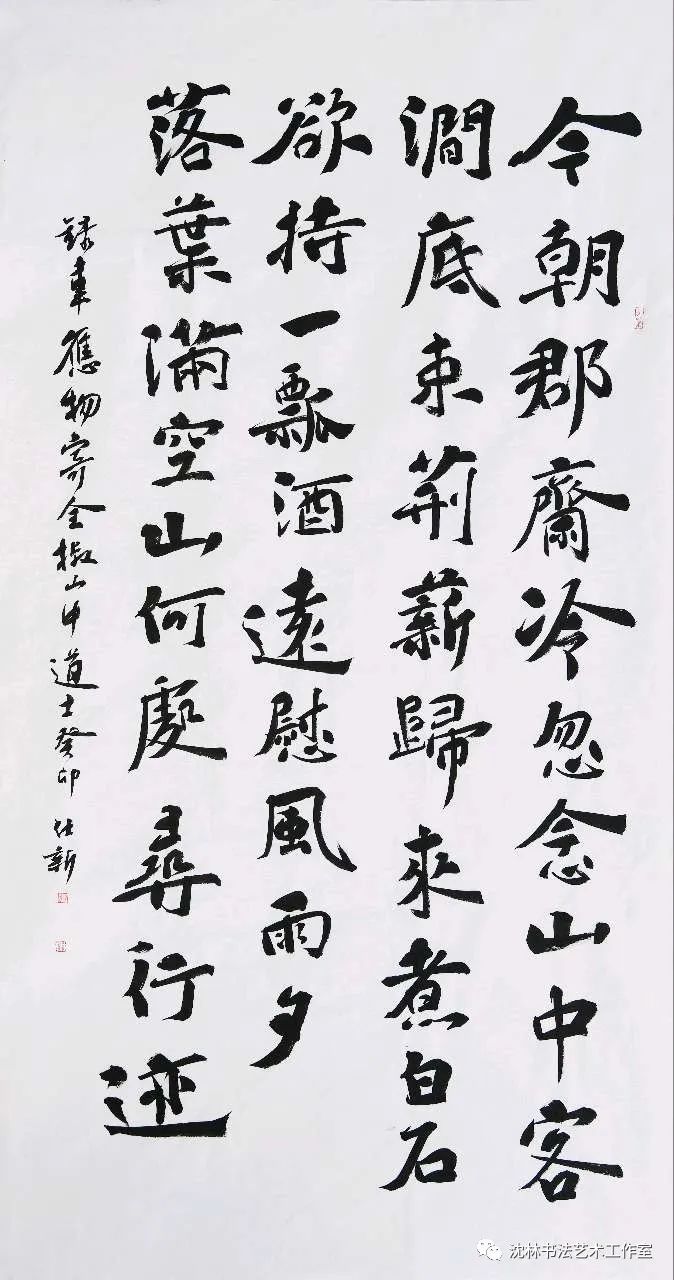 今朝郡齋冷忽念山中客
澗底束荊薪歸來煮白石
欲持一瓢酒遠慰風雨夕
落葉滿空山何處尋行迹
録韋應物寄全椒山中道士癸卯 仕新
沈林书法艺术工作室